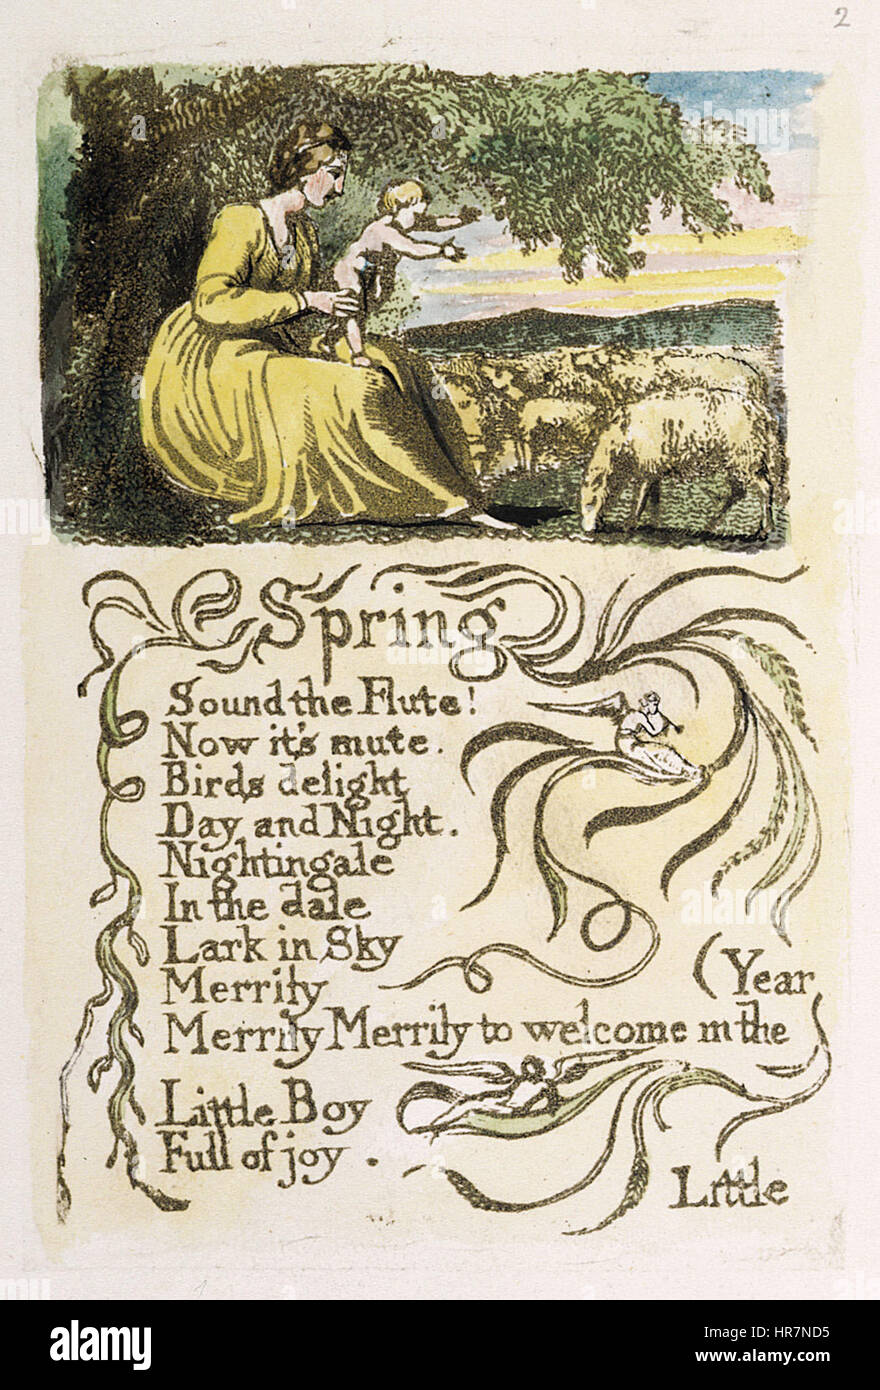 2
Spring
Sound the Flute!
Now it's mute.
Birds delight
Day and Night.
Nightingale
In the dale
Lark in Sky
Merrily
(Year
Merrily Merrily to welcome in the
Little Boy
Full of joy.
Little
alamy stock photo
HR7ND5
www.alamy.com